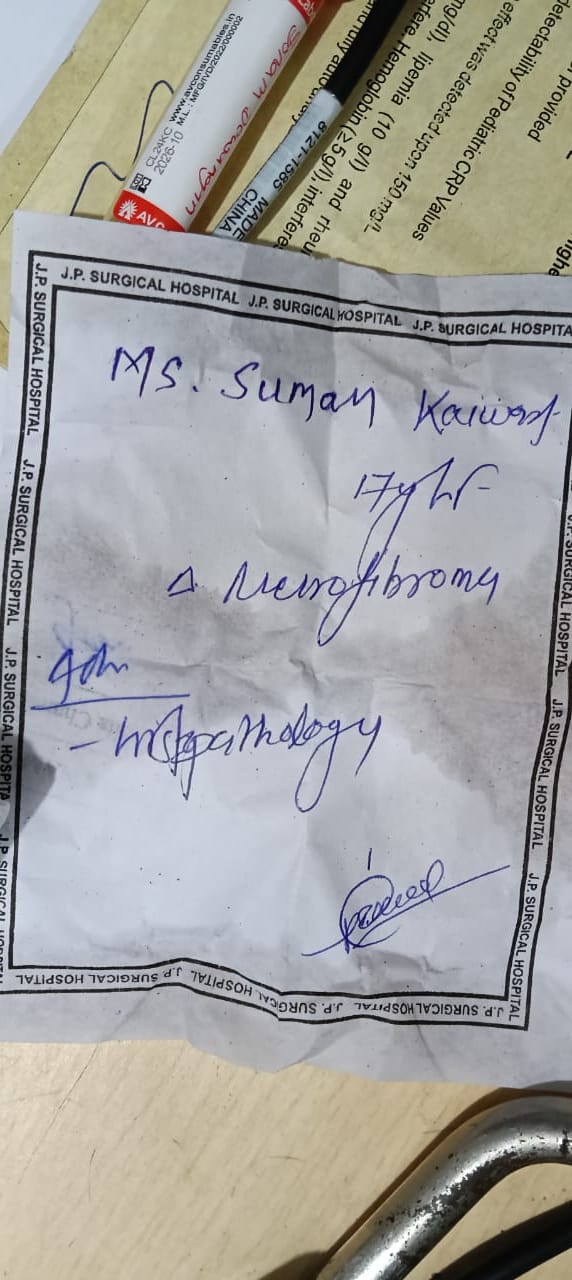 www.avconsumables.in
M.L.: MFG/IVD/2022/000002
CL24KC
2026-10
AVC
6121-1585
MADE
CHINA
detectability of Pediatric CRP Values
effect was detected upon 150 mg/L
mg/dl), lipemia (10 g/l) and rheu
erfere. Hemoglobin (≥ 5 g/l), interfere
provided
J.P. SURGICAL HOSPITAL J.P. SURGICAL HOSPITAL J.P. SURGICAL HOSPITA
J.P. SURGICAL HOSPITAL J.P. SURGICAL HOSPITAL J.P. SURGICAL HOSPITA
Ms. Suman
17y/F
Δ Neurofibroma
Adv
- histopathology
J.P. SURGICAL HOSPITAL J.P. SURGICAL HOSPITAL J.P. SURGICAL HOSPITAL
J.P. SURGICAL HOSPITAL J.P. SURGICAL HOSPITAL J.P. SURGICAL HOSPITAL J.P. SURGICAL HOSPITAL